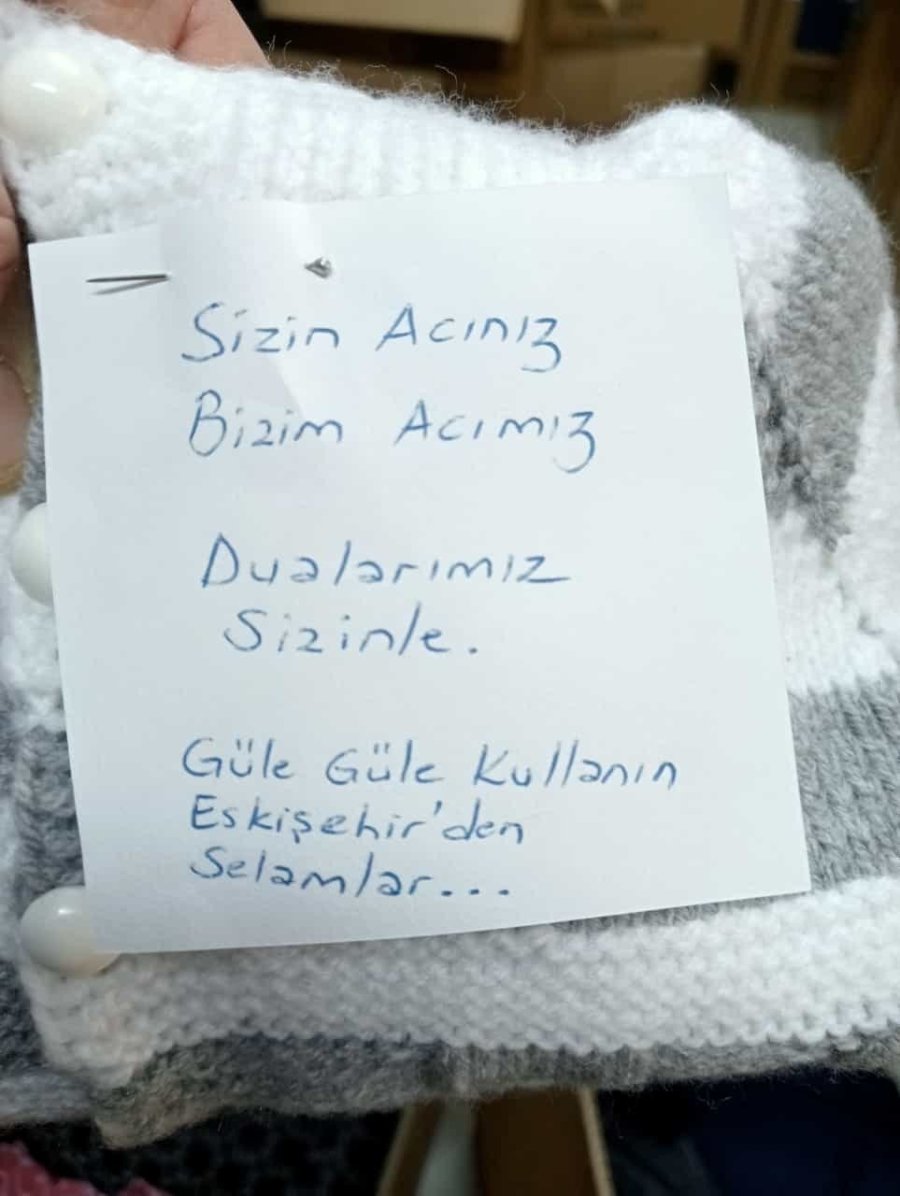 Sizin Acınız
Bizim Acımız
Dualarımız
Sizinle.
Güle Güle Kullanın
Eskişehir'den
Selamlar...